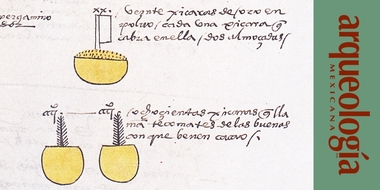 pergamino
xx.
veynte xicaras de oro en
polvo / cada una xicara q̃
cabra en ella / dos almoçadas /
ochocientas xicaras q̃ lla
mã tecomates de las buenas
con que beven cacao /.
arqueología
MEXICANA